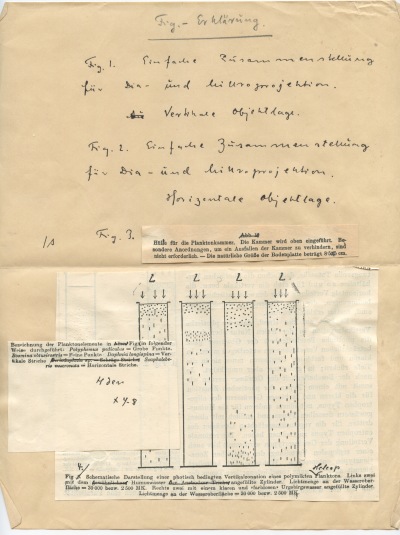 Fig.- Erklärung.
Fig. 1. Einfache Zusammenstellung
für Dia- und Mikroprojektion.
Vertikale Objektlage.
Fig. 2. Einfache Zusammenstellung
für Dia- und Mikroprojektion.
Horizontale Objektlage.
Fig. 3.
Hülle für die Planktonkammer. Die Kammer wird oben eingeführt. Be-
sondere Anordnungen, um ein Ausfallen der Kammer zu verhindern, sind
nicht erforderlich. — Die natürliche Größe der Bodenplatte beträgt cm.
L L L L
Bezeichnung der Planktonelemente in folgender
Weise durchgeführt: Polyphemus pediculus = Grobe Punkte.
= Feine Punkte. Daphnia longispina = Ver-
tikale Striche. Scapholebe-
ris mucronata = Horizontale Striche.
Fig Schematische Darstellung einer photisch bedingten Vertikalwanderung eines polymikten Planktons. Links zwei
mit dem Humuswasser angefüllte Zylinder. Lichtmenge an der Wasserober-
fläche = 50 000 bezw. 2 500 MK. Rechts zwei mit einem klaren und Urgebirgswasser angefüllte Zylinder.
Lichtmenge an der Wasseroberfläche = 50 000 bezw. 2 500 MK.